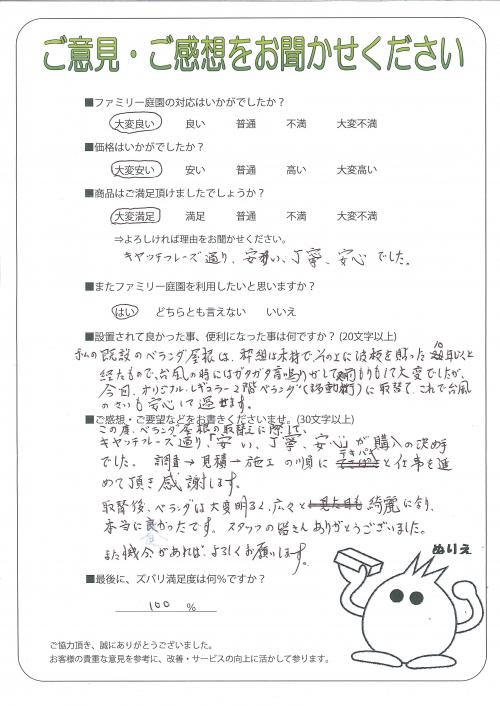 ご意見・ご感想をお聞かせください
■ファミリー庭園の対応はいかがでしたか？
大変良い 良い 普通 不満 大変不満
■価格はいかがでしたか？
大変安い 安い 普通 高い 大変高い
■商品はご満足頂けましたでしょうか？
大変満足 満足 普通 不満 大変不満
⇒よろしければ理由をお聞かせください。
キャッチフレーズ通り、安い、丁寧、安心 でした。
■またファミリー庭園を利用したいと思いますか？
はい どちらとも言えない いいえ
■設置されて良かった事、便利になった事は何ですか？(20文字以上)
私の既設のベランダ屋根は、枠組は木材で、その上に波板を貼った 年以上
経たもので、台風の時にはガタガタ音鳴りがして雨もりもして大変でしたが、
今回、オリジナル レギュラー2階ベランダ に取替て、これで台風
のさいも安心して過せます。
■ご感想・ご要望などをお書きくださいませ。(30文字以上)
この度、ベランダ屋根の取替えに際して、
キャッチフレーズ通り、「安い、丁寧、安心」が購入の決め手
でした。調査→見積→施工の順にテキパキと仕事を進
めて頂き感謝します。
取替後、ベランダは大変明るく、広々と 綺麗になり、
本当に良かったです。スタッフの皆さんありがとうございました。
また機会があれば、よろしくお願いします。
ぬりえ
■最後に、ズバリ満足度は何％ですか？
100 %
ご協力頂き、誠にありがとうございました。
お客様の貴重な意見を参考に、改善・サービスの向上に活かして参ります。